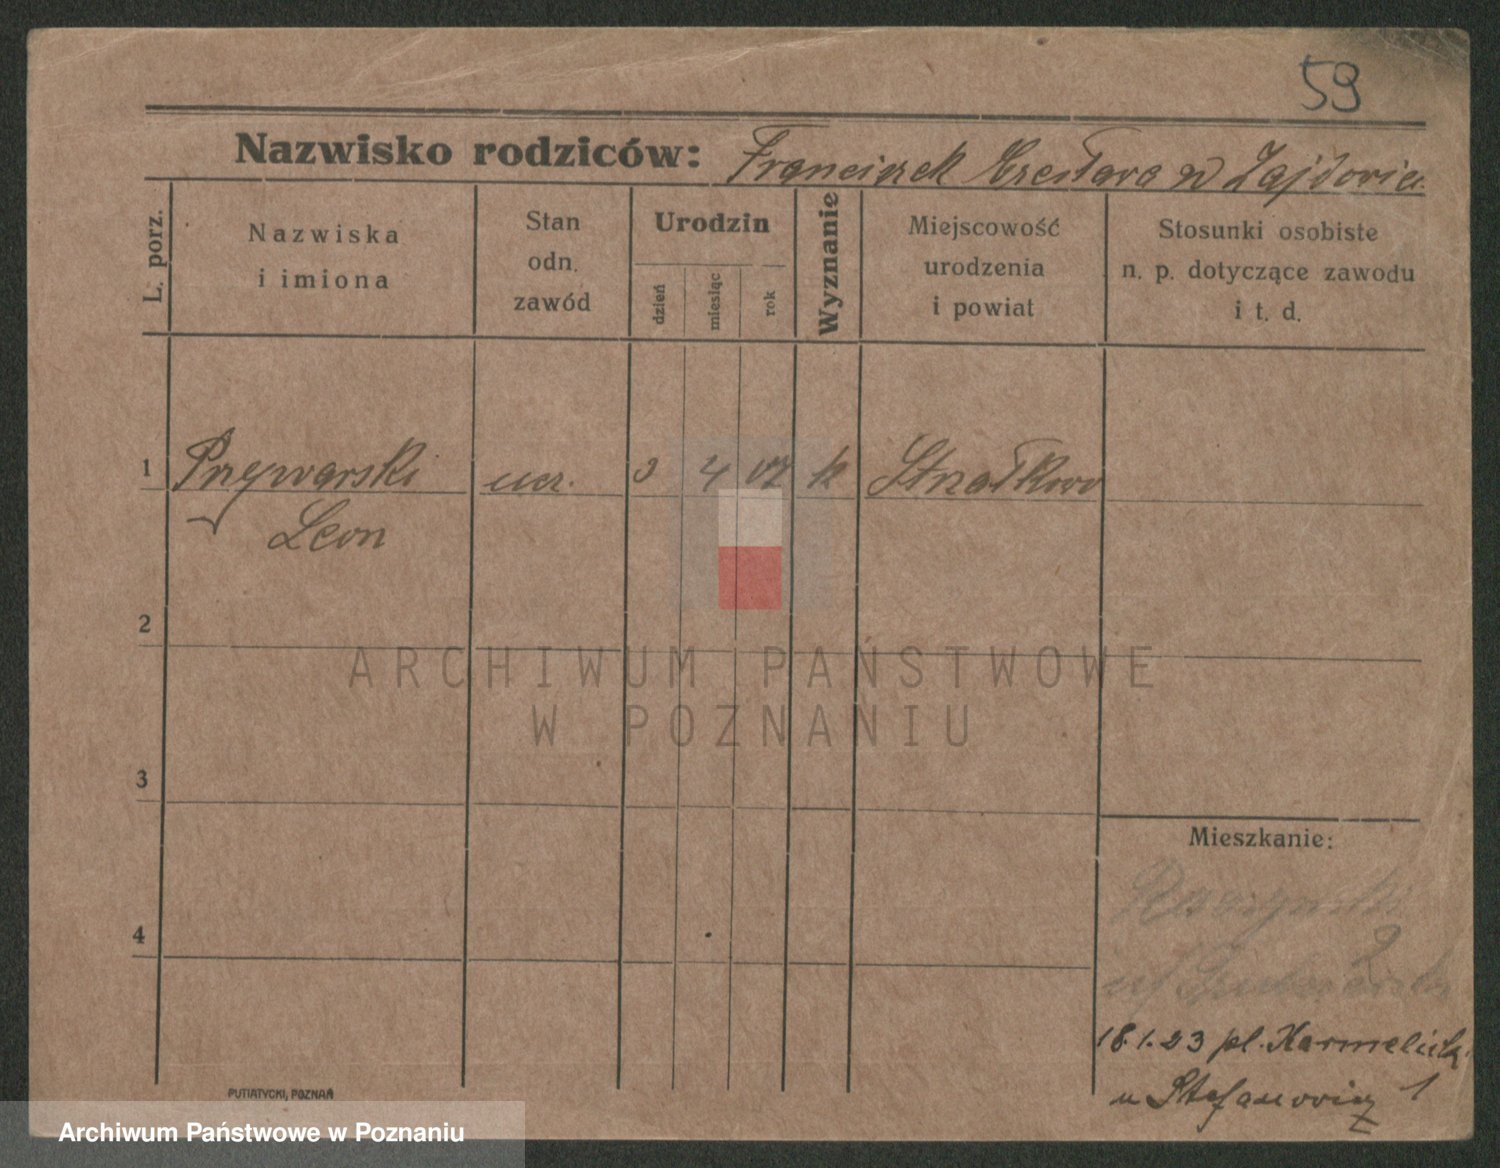 59
Nazwisko rodziców: Franciszek w
L. porz.
Nazwiska
i imiona
Stan
odn.
zawód
Urodzin
dzień
miesiąc
rok
Wyznanie
Miejscowość
urodzenia
i powiat
Stosunki osobiste
n. p. dotyczące zawodu
i t. d.
1 ucz. 3 4 07 k Strzałkowo
Leon
2
ARCHIWUM PAŃSTWOWE
W POZNANIU
3
Mieszkanie:
4
18.1.23 pl. Karmelicki
u Stefanowicz 1
PUTIATYCKI, POZNAŃ
Archiwum Państwowe w Poznaniu